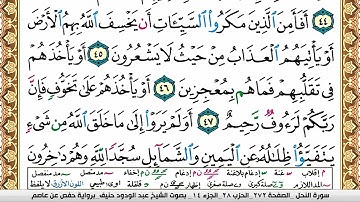 ٤٤ أَفَأَمِنَ ٱلَّذِينَ مَكَرُوا۟ ٱلسَّيِّـَٔاتِ أَن يَخْسِفَ ٱللَّهُ بِهِمُ ٱلْأَرْضَ
أَوْ يَأْتِيَهُمُ ٱلْعَذَابُ مِنْ حَيْثُ لَا يَشْعُرُونَ ٤٥ أَوْ يَأْخُذَهُمْ
فِى تَقَلُّبِهِمْ فَمَا هُم بِمُعْجِزِينَ ٤٦ أَوْ يَأْخُذَهُمْ عَلَىٰ تَخَوُّفٍ فَإِنَّ
رَبَّكُمْ لَرَءُوفٌ رَّحِيمٌ ٤٧ أَوَلَمْ يَرَوْا۟ إِلَىٰ مَا خَلَقَ ٱللَّهُ مِن شَىْءٍ
يَتَفَيَّؤُا۟ ظِلَـٰلُهُۥ عَنِ ٱلْيَمِينِ وَٱلشَّمَآئِلِ سُجَّدًا لِّلَّهِ وَهُمْ دَٰخِرُونَ
سورة النحل . الصفحة ٢٧٢ . الحزب ٢٨ . الجزء ١٤ . بصوت الشيخ عبد الودود حنيف برواية حفص عن عاصم